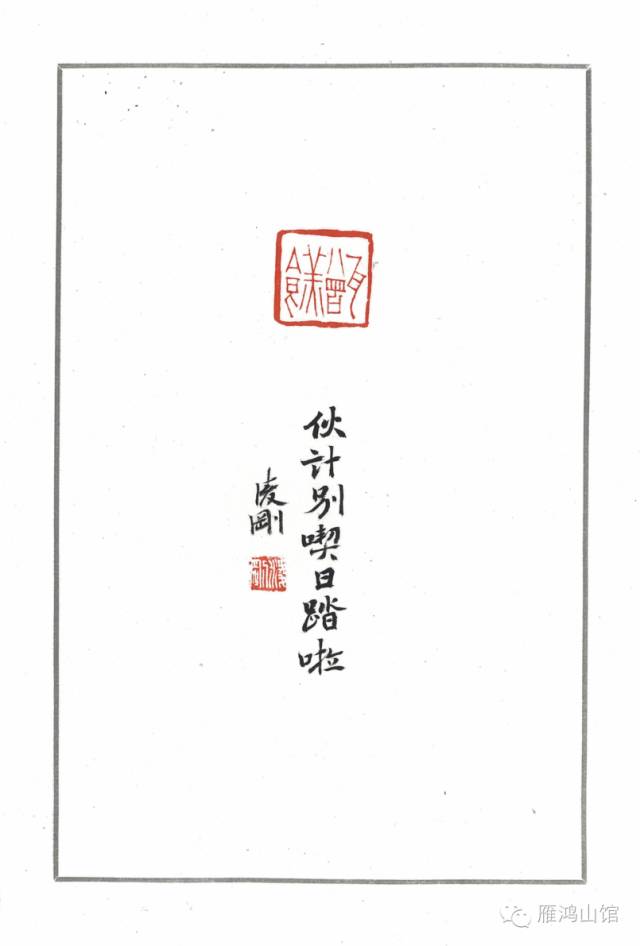 伙计别喫日踏啦
凌刚
雁鸿山馆